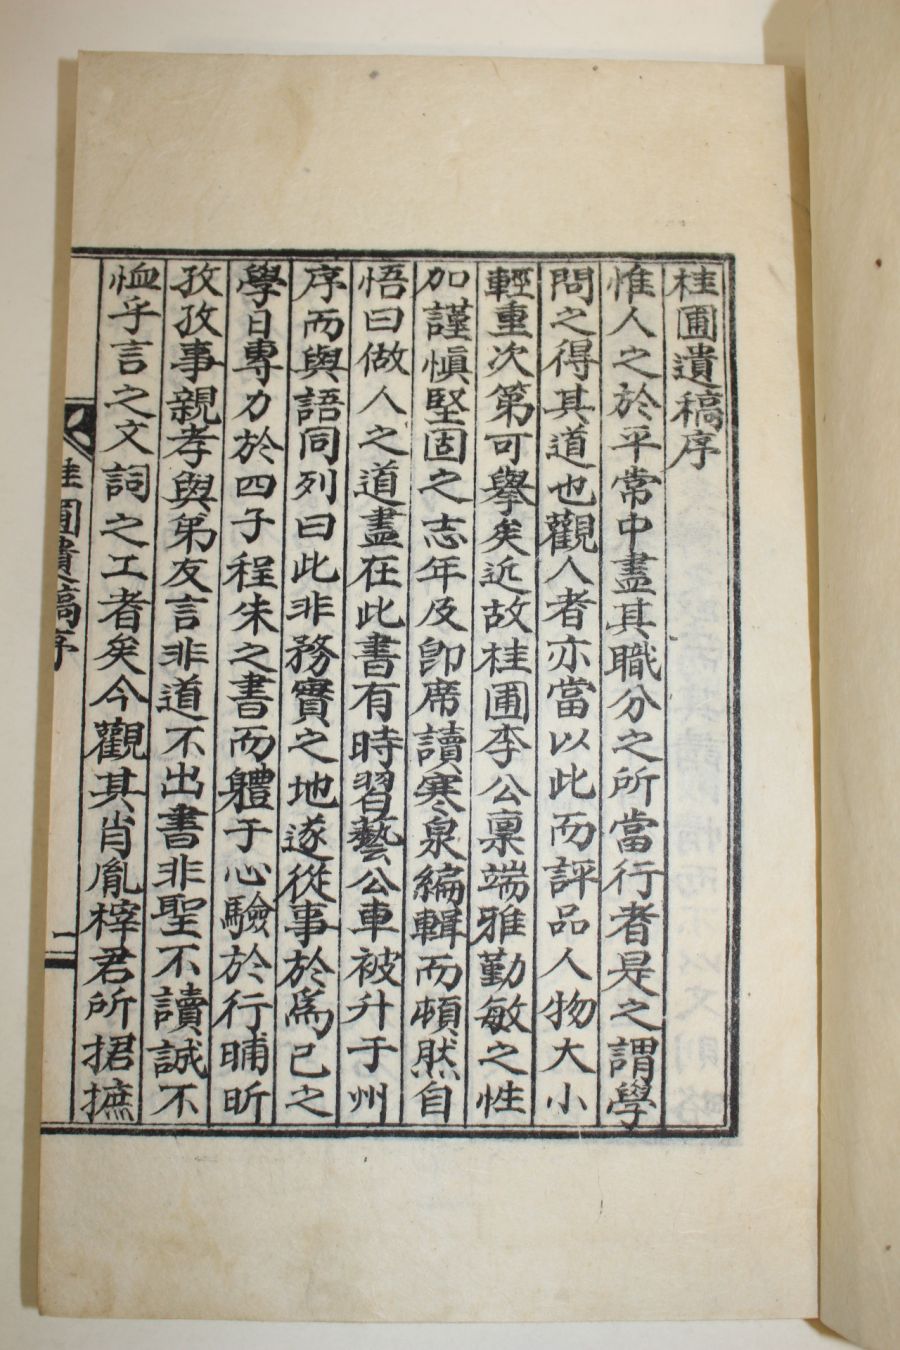 桂圃遺稿序
惟人之於平常中盡其職分之所當行者是之謂學
問之得其道也觀人者亦當以此而評品人物大小
輕重次第可擧矣近故桂圃李公稟端雅勤敏之性
加謹愼堅固之志年及卽席讀寒泉編輯而頓然自
悟曰做人之道盡在此書有時習藝公車被升于州
序而與語同列曰此非務實之地遂從事於爲己之
學日專力於四子程朱之書而體于心驗於行晡昕
孜孜事親孝與弟友言非道不出書非聖不讀誠不
恤乎言之文詞之工者矣今觀其肖胤梓君所捃摭
桂圃遺稿序
一